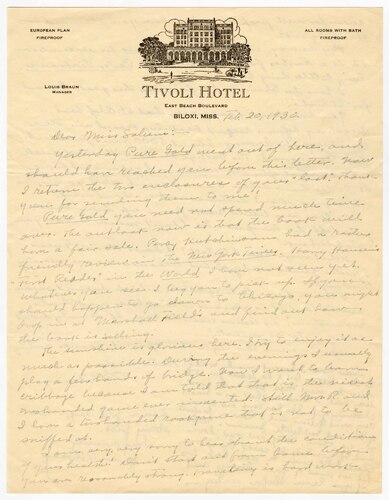 EUROPEAN PLAN
FIREPROOF
ALL ROOMS WITH BATH
FIREPROOF
LOUIS BRAUN
MANAGER
TIVOLI HOTEL
EAST BEACH BOULEVARD
BILOXI, MISS.
Feb. 20, 1930.
Dear Miss
Yesterday Pure Gold went out of here, and
should have reached you before this letter. Now
I return the two enclosures of your last. Thank-
you for sending them to me.
Pure Gold you need not spend much time
over. The outlook now is that the book will
have a fair sale. Percy Hutchison had a rather
friendly review in The New York Times. Harry Hansen's
in the World I have not seen yet.
Whatever you see I beg you to pick up. If you
should happen to go down to Chicago, you might
in at Marshall Field's and find out how
the book is selling.
The sunshine is glorious here. I try to enjoy it as
much as possible. During the evenings I usually
play a few hands of bridge. Now I want to learn
cribbage because I am told that that is the nicest
two handed game ever invented. Still Mrs. R and
I have a two handed that is not to be
sniffed at.
I am very, very sorry to hear about the condition
of your health. Don't start out from home before
you are reasonably strong. Traveling is hard work